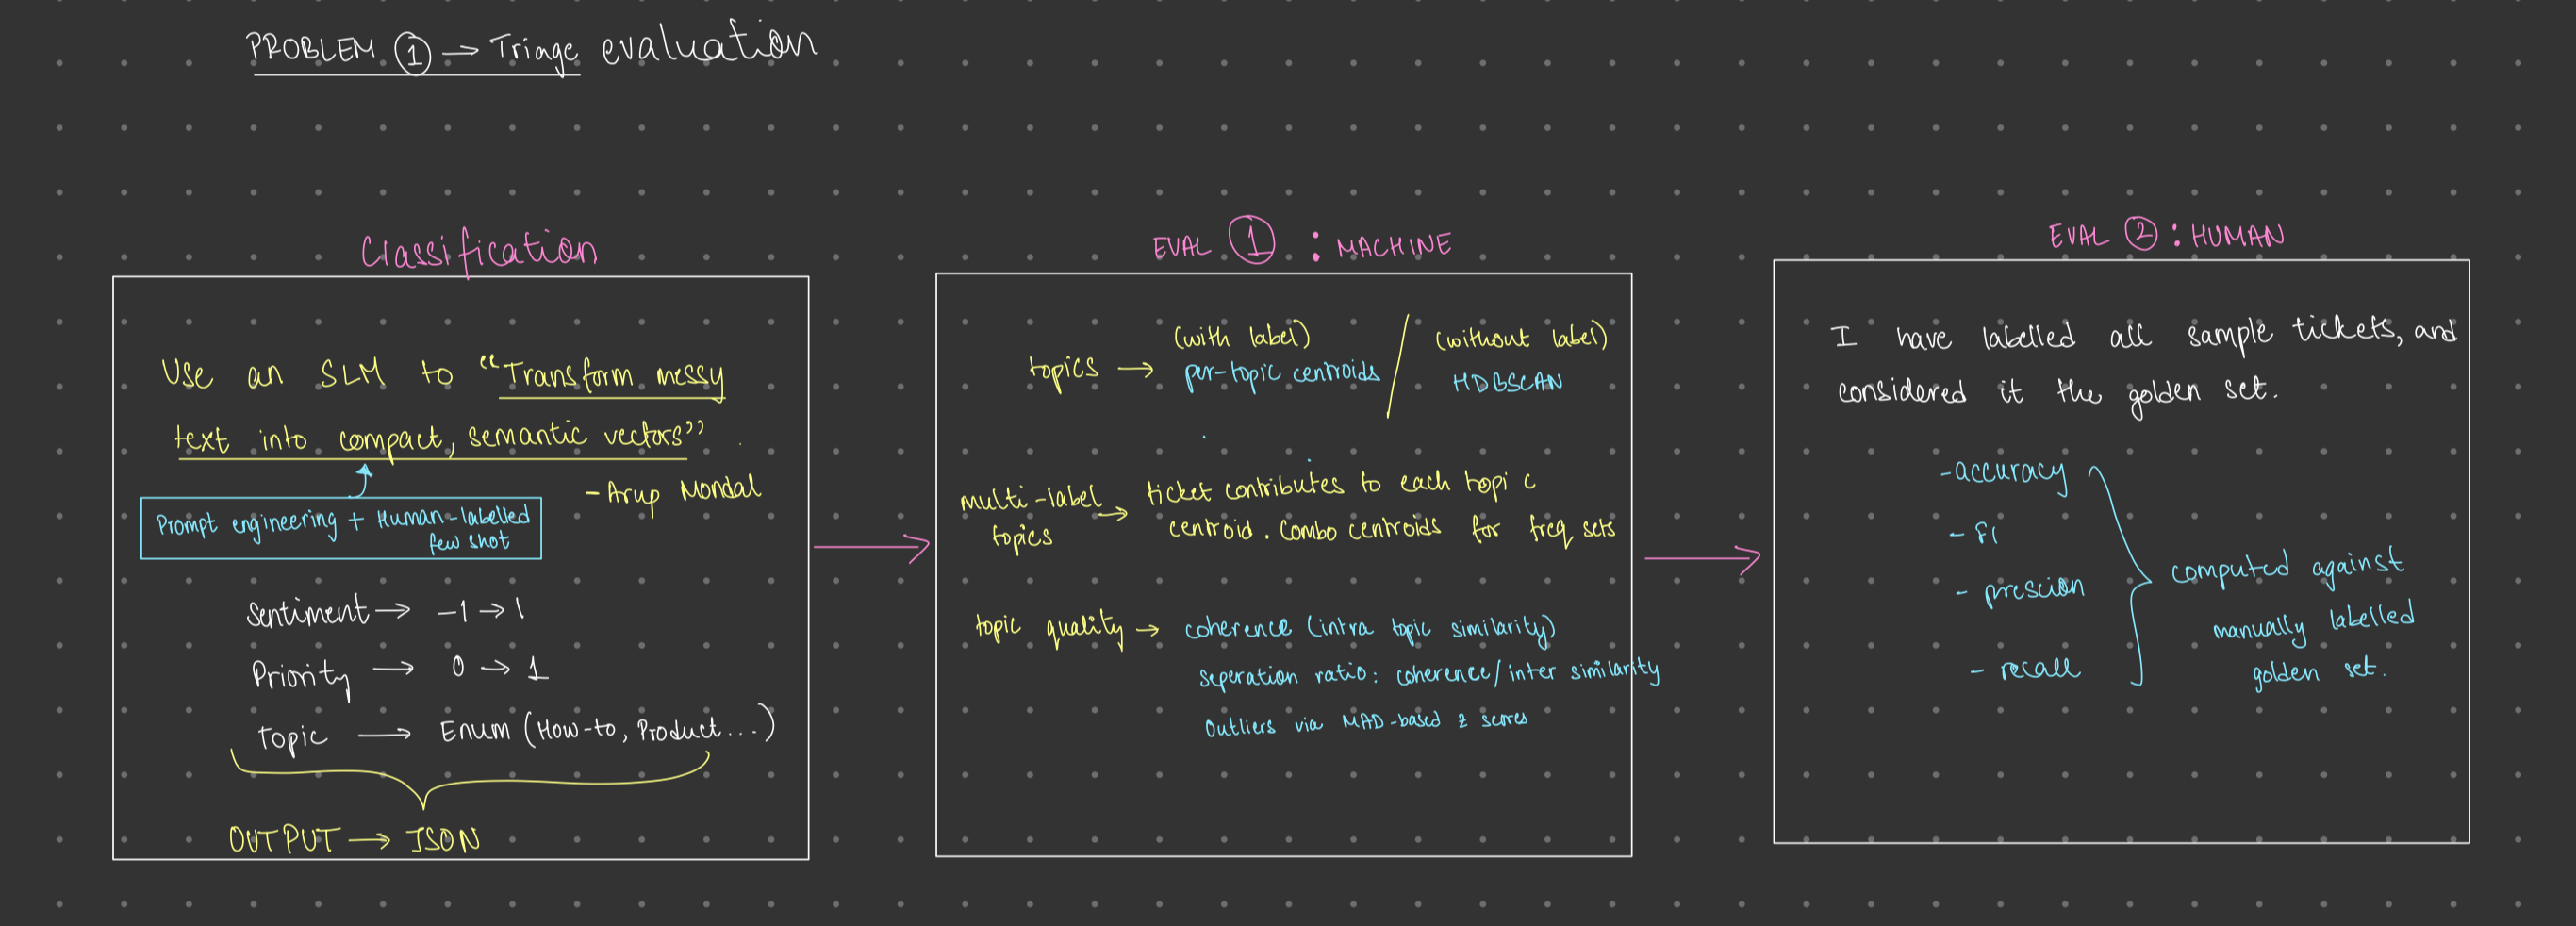 PROBLEM ① → Triage evaluation
Classification
Use an SLM to "Transform messy
text into compact, semantic vectors".
- Arup Mondal
Prompt engineering + Human-labelled
few shot
Sentiment → -1 → 1
Priority → 0 → 1
topic → Enum (How-to, Product...)
OUTPUT → JSON
EVAL ① : MACHINE
(with label) / (without label)
topics → per-topic centroids / HDBSCAN
multi-label topics → ticket contributes to each topic
centroid. Combo centroids for freq sets
topic quality → coherence (intra topic similarity)
seperation ratio: coherence/inter similarity
Outliers via MAD-based z scores
EVAL ② : HUMAN
I have labelled all sample tickets, and
considered it the golden set.
- accuracy
- F1
- prescion
- recall
computed against
manually labelled
golden set.